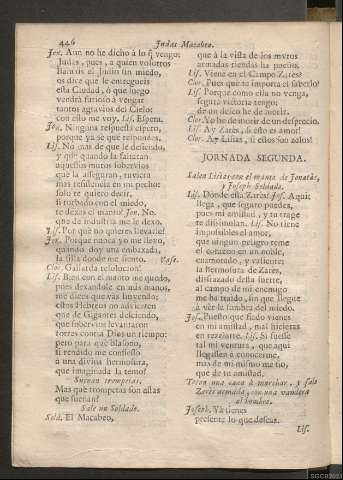 446
Judas Macabeo.
Jon. Aun no he dicho à lo q̃ vengo:
Judas, pues, a quien vosotros
llamais el Judio sin miedo,
os dice que le entregueis
esta Ciudad, ò que luego
vendrà furioso à vengar
tantos agravios del Cielo:
con esto me voy. Lis. Espera.
Jon. Ninguna respuesta espero,
porque ya sè que responderà.
Lis. No mas de que le desciendo,
y que quando la faltaran
aquessos muros sobervios
que la asseguran, tuviera
mas resistencia en mi pecho:
solo te quiero decir,
si turbado con el miedo,
te dexas el manto? Jon. No,
que de industria me le dexo.
Lis. Por què no quieres llevarle?
Jon. Porque nunca yo me llevo,
quando doy una embaxada,
la silla donde me siento. Vase.
Clor. Gallarda resolucion!
Lis. Bien con el manto me quedo,
pues dexandole en mis manos,
me dices que vàs huyendo;
estos Hebreos no
que de Gigantes desciendo,
que sobervios levantaron
torres contra Dios un tiempo:
pero para què blasono,
si rendido me confiesso
a una divina hermosura,
que imaginada la temo?
Suenan trompetas.
Mas què trompetas son estas
que suenan?
Sale un Soldado.
Sold. El Macabeo,
que à la vista de los muros
armadas tiendas ha puesto.
Lis. Viene en el Campo Zarès?
Clor. Pues què te importa el saberlo?
Lis. Porque como ella no venga,
segura victoria tengo;
de un delito he de morir.
Clor. Yo he de morir de un desprecio.
Lis. Ay Zarès, si esto es amor!
Clor. Ay Lisias, si estos son zelos!
JORNADA SEGUNDA.
Salen Lisias con el manto de Jonatàs,
y Joseph Soldado.
Lis. Donde està Zarès? Jos. Aqui:
llega, que seguro puedes,
pues mi amistad, y tu trage
te dissimulan. Lis. No tiene
impossibles el amor,
que ningun peligro teme
el corazon en un noble,
enamorado, y valiente:
la hermosura de Zarès,
disfrazado desta suerte,
al campo de mi enemigo
me ha traido, sin que llegue
à vèr la sombra del miedo.
Jos. Puesto que fiado vienes
en mi amistad, mal hicieras
en rezelarte. Lis. Si fuesse
tal mi ventura, que aqui
llegassen à conocerme,
mas de mi mismo me fio,
que de tu amistad.
Tocan una caxa à marchar, y sale
Zarès armada, con una vandera
al hombro.
Joseph. Yà tienes
presente lo que deseas.
Lis.
SGCB2021